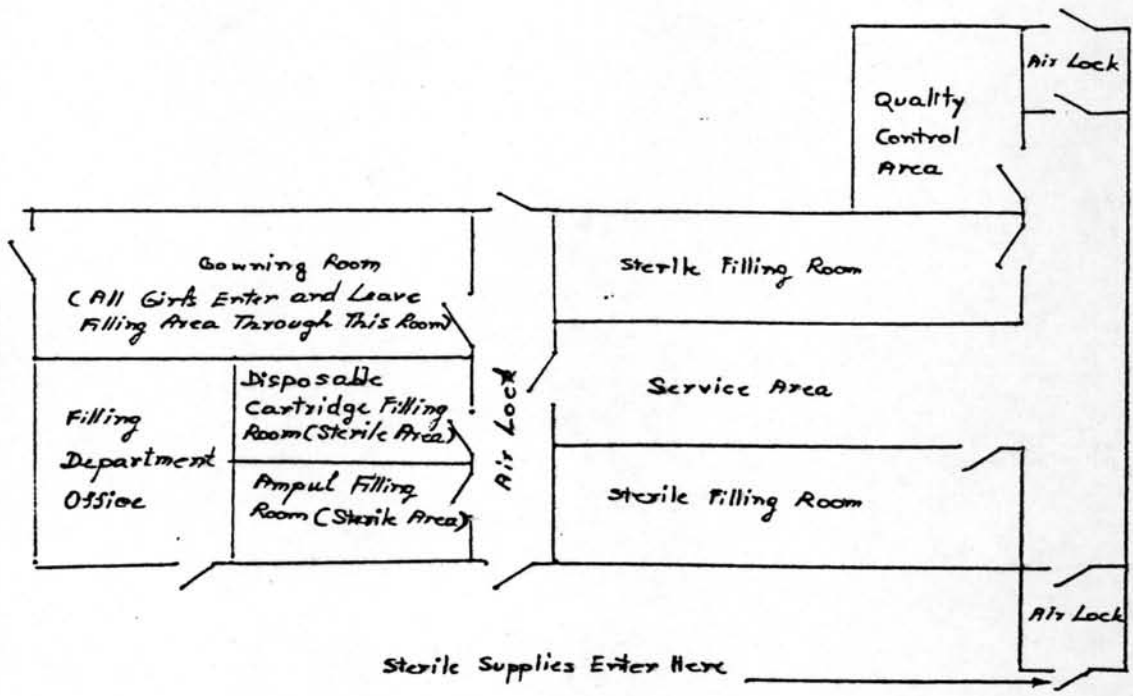 Air Lock
Quality
Control
Area
Gowning Room
(All Girls Enter and Leave
Filling Area Through This Room)
Sterile Filling Room
Disposable
Cartridge Filling
Room (Sterile Area)
Filling
Department
Office
Ampul Filling
Room (Sterile Area)
Air Lock
Service Area
Sterile Filling Room
Air Lock
Sterile Supplies Enter Here